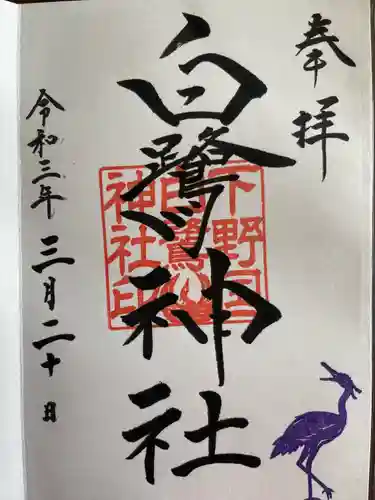 奉拝
白鷺神社
下野国
白鷺
神社印
令和三年三月二十日